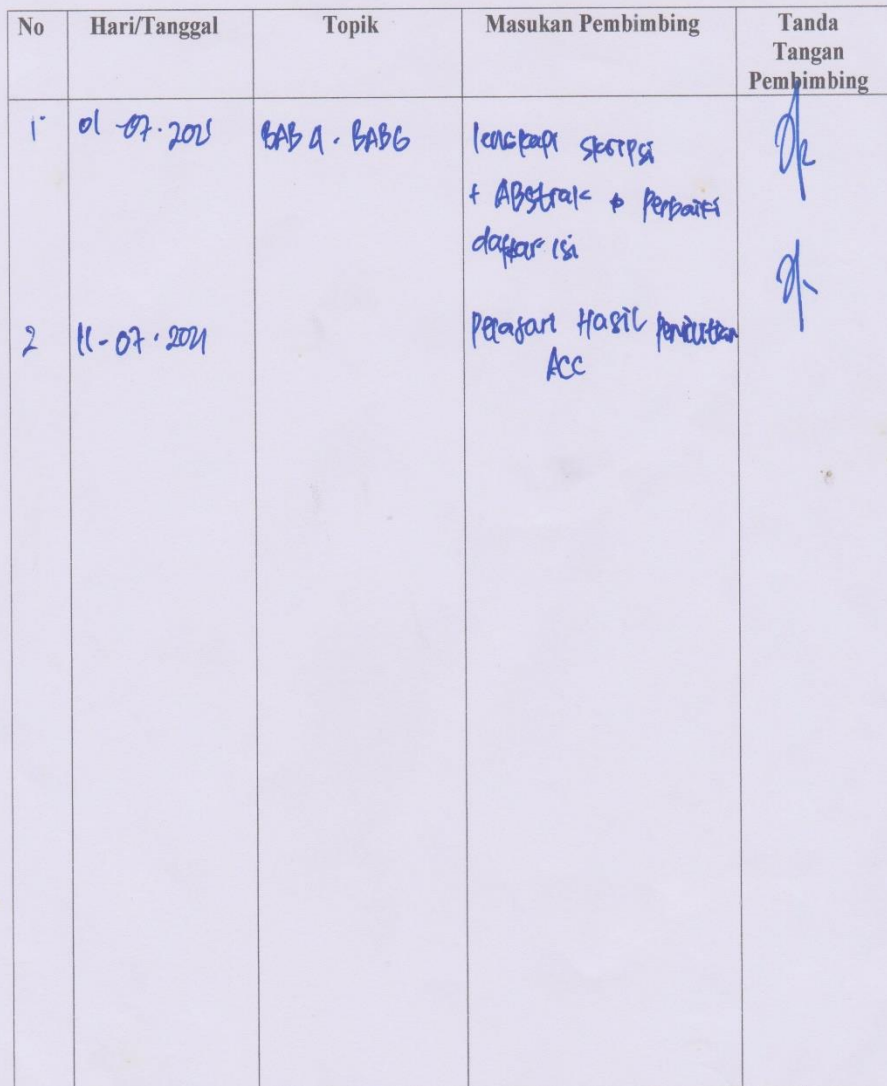 No Hari/Tanggal Topik Masukan Pembimbing Tanda
Tangan
Pembimbing
1. 01-07.2021 BAB 4. BAB 6 lengkapi skripsi
+ ABstrak + perbaiki
daftar isi
2 11-07.2021 pelajari Hasil penelitian
ACC